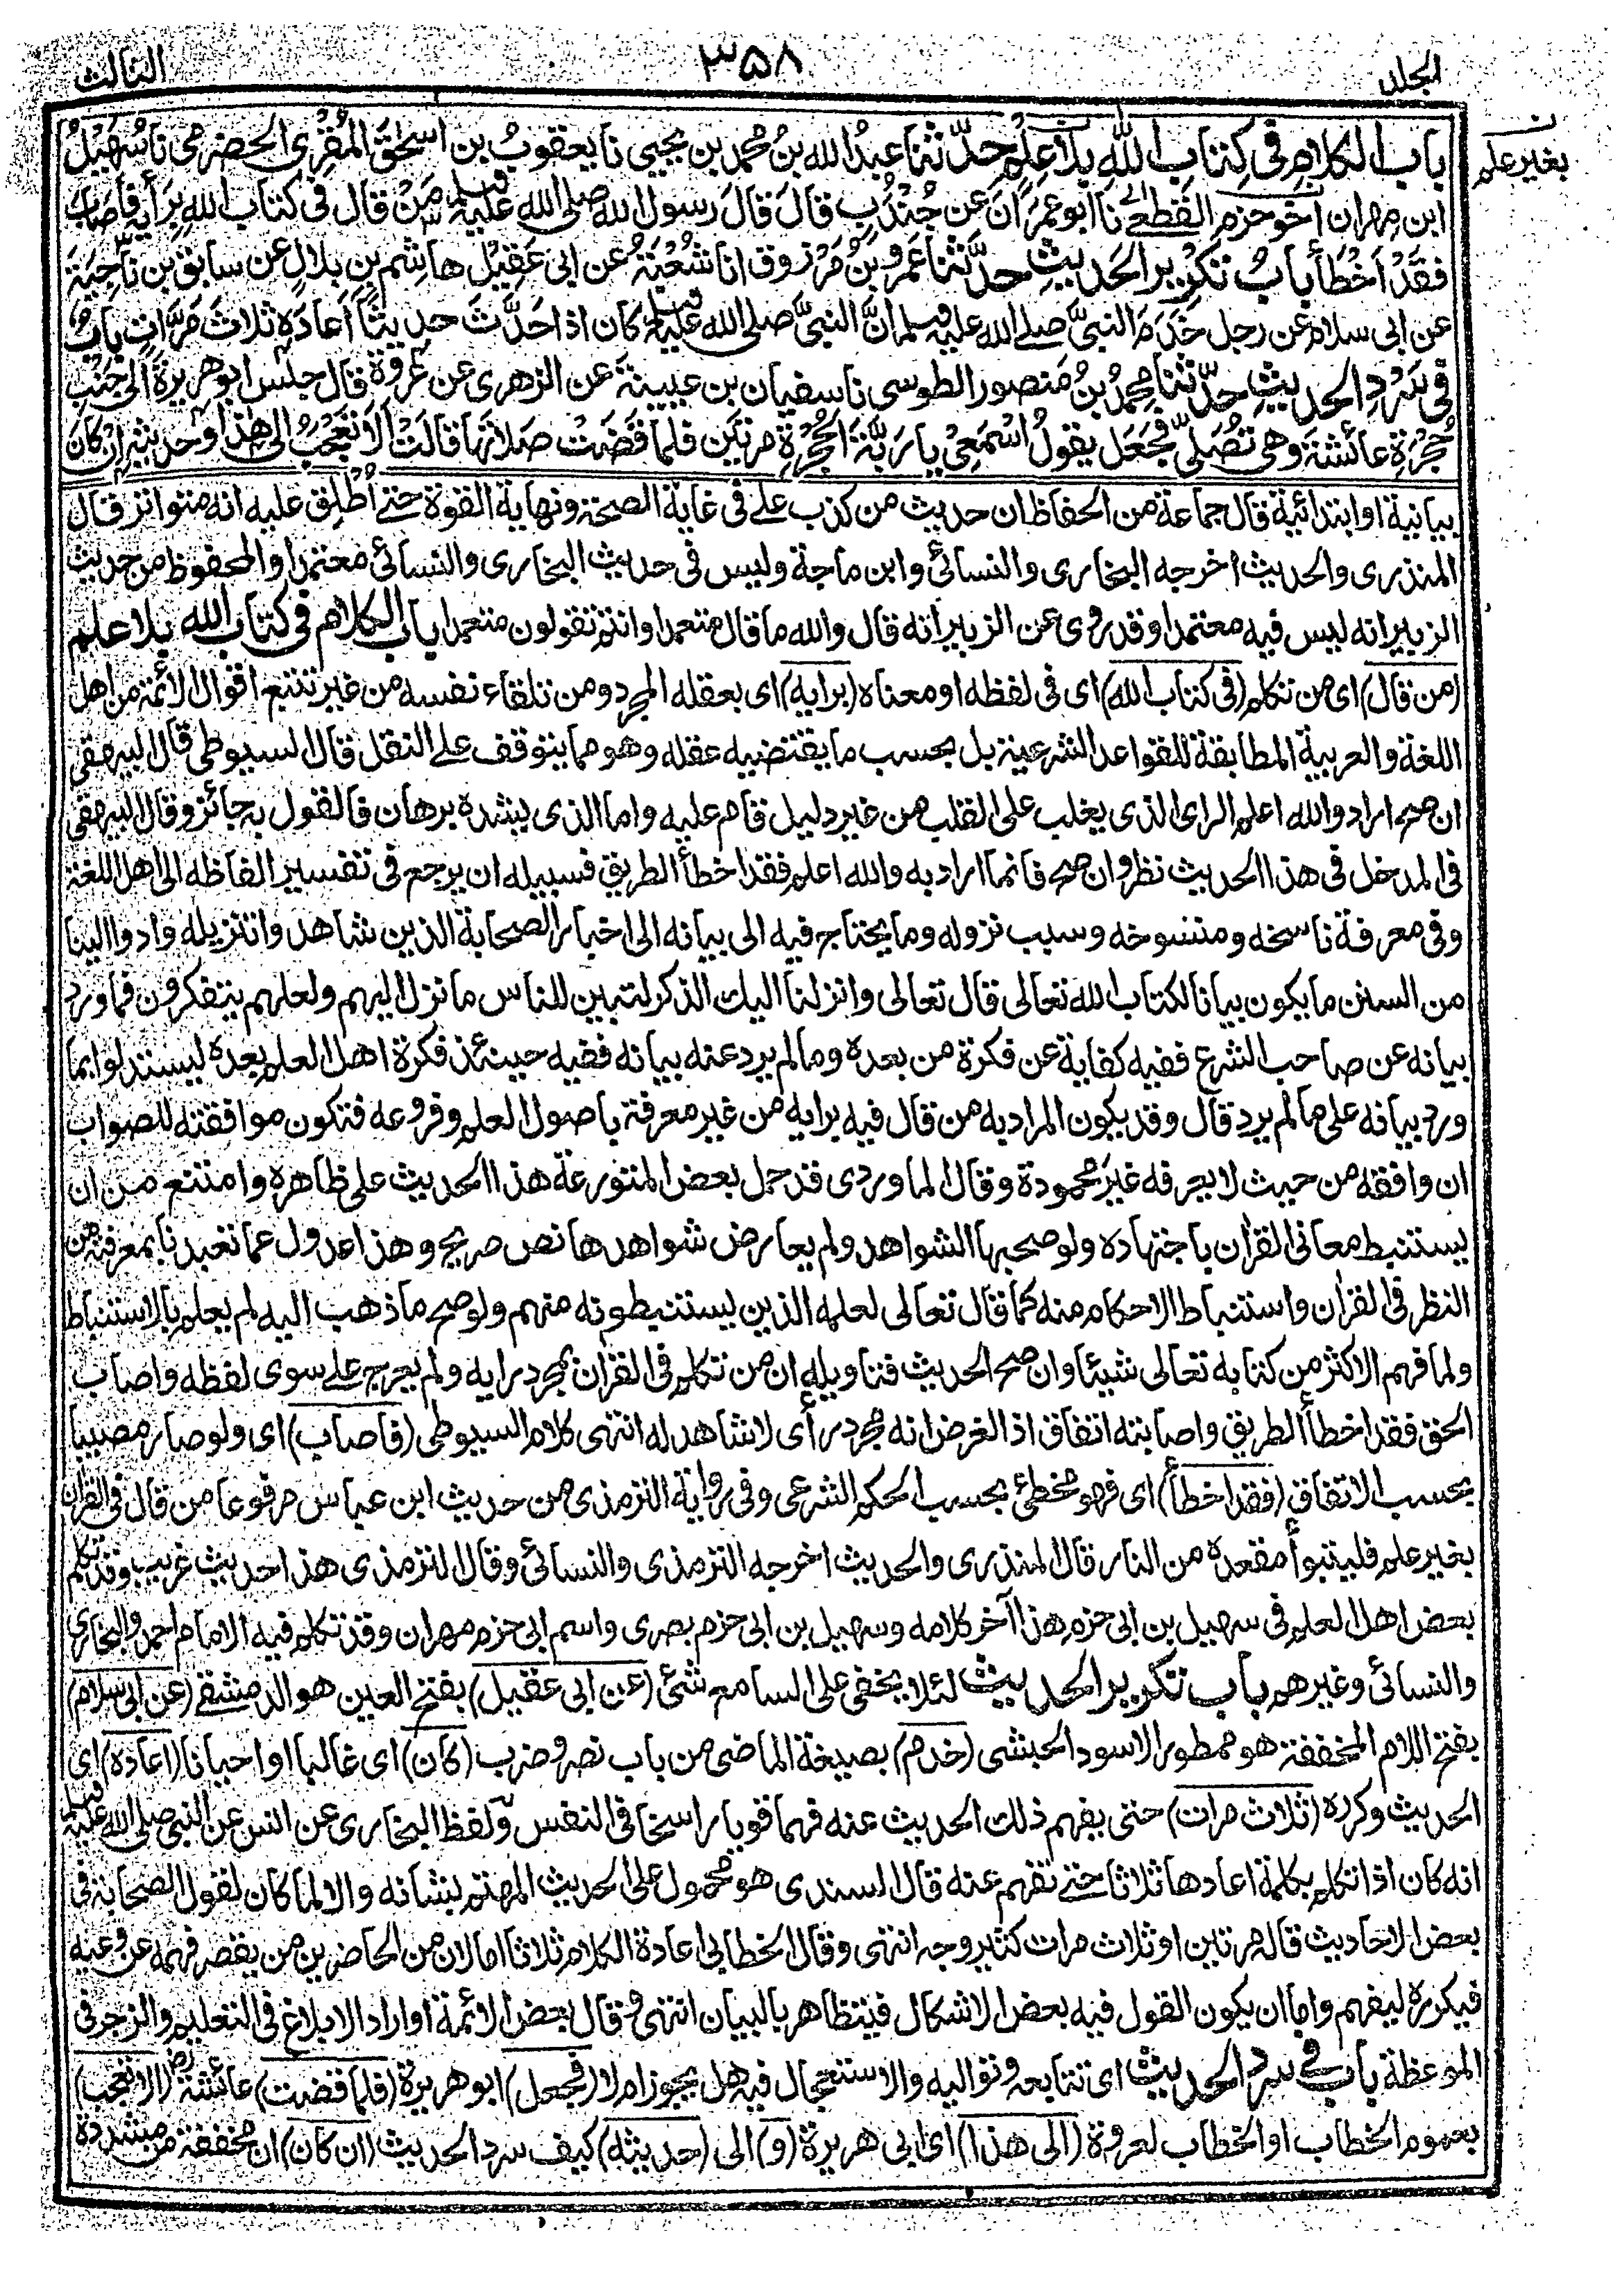 المجلد
٣٥٨
الثالث
باب الكلام في كتاب الله بلا علم حدّثنا عبدُ الله بنُ محمد بن يحيي نا يعقوبُ بن اسحٰق المُقْرِئُ الحضرمي نا سُهَيْلُ
بغير علم
ابن مهران اخو حزم القُطَعِي نا ابو عِمْرَانَ عن جُنْدُبٍ قالَ قالَ رسول الله صلى الله عليه وسلم مَنْ قال في كتاب الله بِرَأيِه فاصابَ
فَقَدْ اَخْطَأَ بابُ تكريرِ الحديثِ حدّثنا عَمرُو بنُ مَرْزوق انا شُعْبَةُ عن ابي عَقِيْلٍ هاشِمِ بنِ بلالٍ عن سابق بن ناجِيَةَ
عن ابي سلام عن رجل خَدَمَ النبيَّ صلى الله عليه وسلم انَّ النبيَّ صلى الله عليه وسلم كان اذا حَدَّثَ حديثًا اَعَادَه ثلاثَ مَرَّاتٍ بابٌ
في سَرْدِ الحديثِ حدّثنا محمدُ بنُ منصور الطوسي نا سفيان بن عيينة عن الزهري عن عروة قال جلس ابو هريرة الى جَنْبِ
حُجْرَةِ عائشةَ وهي تُصَلِّي فجَعَلَ يقولُ اسْمَعِيْ يا رَبَّةَ الحُجْرَةِ مرتين فلما قَضَتْ صلاتَها قالَتْ اَلَا تَعْجَبُ الى هذا وحديثِه اِنْ كان
بيانية او ابتدائية قال جماعة من الحفاظ ان حديث من كذب علي في غاية الصحة ونهاية القوة حتى اُطلق عليه انه متواتر قال
المنذري والحديث اخرجه البخاري والنسائي وابن ماجة وليس في حديث البخاري والنسائي معتمدا والمحفوظ من حديث
الزبير انه ليس فيه معتمدا وقد روي عن الزبير انه قال والله ما قال متعمدا وانتم تقولون متعمدا باب الكلام في كتاب الله بلا علم
(من قال) اي من تكلم (في كتاب الله) اي في لفظه او معناه (برايه) اي بعقله المجرد ومن تلقاء نفسه من غير تتبع اقوال الائمة من اهل
اللغة والعربية المطابقة للقواعد الشرعية بل بحسب ما يقتضيه عقله وهو مما يتوقف على النقل قال السيوطي قال البيهقي
ان صح اراد والله اعلم الراي الذي يغلب على القلب من غير دليل قام عليه واما الذي يشده برهان فالقول به جائز وقال البيهقي
في المدخل في هذا الحديث نظر وان صح فانما اراد به والله اعلم فقد اخطأ الطريق فسبيله ان يرجع في تفسير الفاظه الى اهل اللغة
وفي معرفة ناسخه ومنسوخه وسبب نزوله وما يحتاج فيه الى بيانه الى اخبار الصحابة الذين شاهدوا تنزيله وادوا الينا
من السنن ما يكون بيانا لكتاب الله تعالى قال تعالى وانزلنا اليك الذكر لتبين للناس ما نزل اليهم ولعلهم يتفكرون فما ورد
بيانه عن صاحب الشرع ففيه كفاية عن فكرة من بعده وما لم يرد عنه بيانه ففيه حينئذ فكرة اهل العلم بعده ليستدلوا بما
ورد بيانه على ما لم يرد قال وقد يكون المراد به من قال فيه برايه من غير معرفة باصول العلم وفروعه فتكون موافقته للصواب
ان وافقه من حيث لا يعرفه غير محمودة وقال الماوردي قد حمل بعض المتورعة هذا الحديث على ظاهره وامتنع من ان
يستنبط معاني القران باجتهاده ولو صحبها الشواهد ولم يعارض شواهدها نص صريح وهذا عدول عما تعبدنا بمعرفته من
النظر في القران واستنباط الاحكام منه كما قال تعالى لعلمه الذين يستنبطونه منهم ولو صح ما ذهب اليه لم يعلم بالاستنباط
ولما فهم الاكثر من كتابه تعالى شيئا وان صح الحديث فتاويله ان من تكلم في القران بمجرد رايه ولم يعرج على سوى لفظه واصاب
الحق فقد اخطأ الطريق واصابته اتفاق اذ الغرض انه مجرد رأي لا شاهد له انتهى كلام السيوطي (فاصاب) اي ولو صار مصيبا
بحسب الاتفاق (فقد اخطأ) اي فهو مخطئ بحسب الحكم الشرعي وفي رواية الترمذي من حديث ابن عباس مرفوعا من قال في القران
بغير علم فليتبوأ مقعده من النار قال المنذري والحديث اخرجه الترمذي والنسائي وقال الترمذي هذا حديث غريب وقد تكلم
بعض اهل العلم في سهيل بن ابي حزم هذا آخر كلامه وسهيل بن ابي حزم بصري واسم ابي حزم مهران وقد تكلم فيه الامام احمد والبخاري
والنسائي وغيرهم باب تكرير الحديث لئلا يخفى على السامع شئ (عن ابي عقيل) بفتح العين هو الدمشقي (عن ابي سلام)
بفتح اللام المخففة هو ممطور الاسود الحبشي (خدم) بصيغة الماضي من باب نصر وضرب (كان) اي غالبا او احيانا (اعاده) اي
الحديث وكرره (ثلاث مرات) حتى يفهم ذلك الحديث عنه فهما قويا راسخا في النفس ولفظ البخاري عن انس عن النبي صلى الله عليه وسلم
انه كان اذا تكلم بكلمة اعادها ثلاثا حتى تفهم عنه قال السندي هو محمول على الحديث المهتم بشانه والا لما كان لقول الصحابة في
بعض الاحاديث قاله مرتين او ثلاث مرات كثير وجه انتهى وقال الخطابي اعادة الكلام ثلاثا اما لان من الحاضرين من يقصر فهمه عن وعيه
فيكرره ليفهم واما ان يكون القول فيه بعض الاشكال فيتظاهر بالبيان انتهى وقال بعض الائمة او اراد الابلاغ في التعليم والزجر في
الموعظة باب في سرد الحديث اي تتابعه وتواليه والاستعجال فيه هل يجوز ام لا (فجعل) ابو هريرة (فلما قضت) عائشة رض (الا تعجب)
بعموم الخطاب او الخطاب لعروة (الى هذا) اي ابي هريرة (و) الى (حديثه) كيف سرد الحديث (ان كان) ان مخففة من مشددة